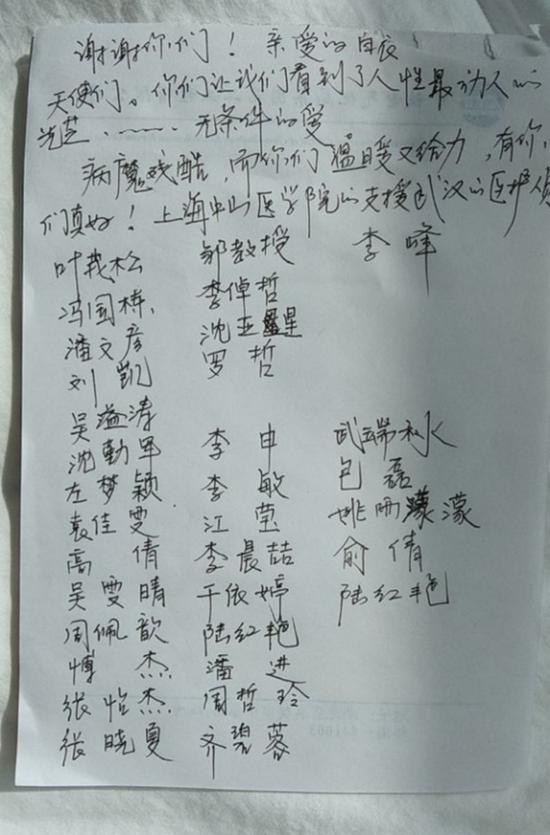 谢谢你们！亲爱的白衣
天使们。你们让我们看到了人性最动人的
光芒……无条件的爱
病魔残酷，而你们温暖又给力，有你
们真好！上海中山医学院的支援武汉的医护
叶茂松 邹教授 李峰
冯国栋 李倬哲
潘文彦 沈亚星
刘凯 罗哲
吴溢涛
沈勤军 李申 武瑞秋
左梦颖 李敏 包磊
袁佳雯 江莹 姚雨濛
高倩 李晨喆 俞倩
吴雯晴 于依婷 陆红艳
周佩歆 陆红艳
傅杰 潘进
张怡杰 周哲玲
张晓夏 齐碧蓉